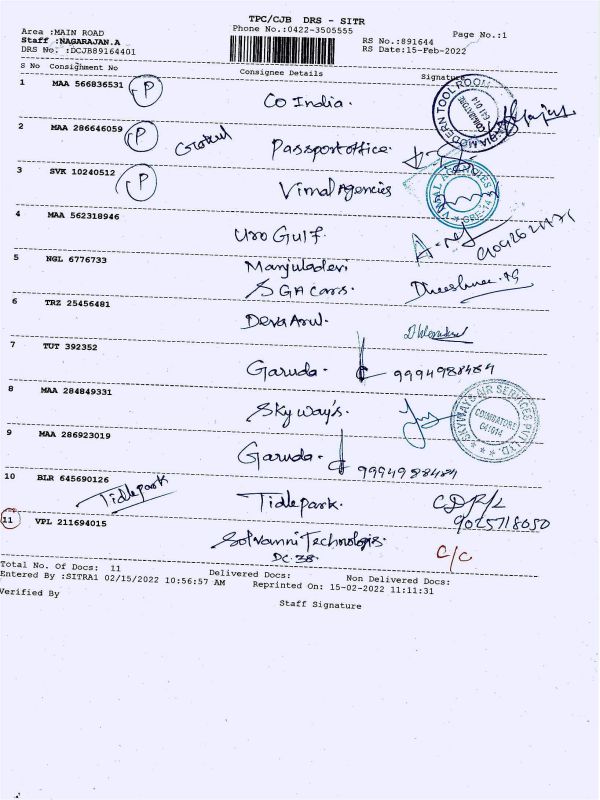 TPC/CJB DRS - SITR
Area :MAIN ROAD
Phone No.:0422-3505555
Page No.:1
Staff :NAGARAJAN.A
RS No.:891644
DRS No. :DCJB89164401
RS Date:15-Feb-2022
S No Consignment No Consignee Details Signature
1 MAA 566836531 P Co India.
2 MAA 286646059 P Passport office.
3 SVK 10240512 P Vimal Agencies
4 MAA 562318946 Uro Gulf.
5 NGL 6776733 Manjuladevi
SGA cars.
6 TRZ 25456481 Deva Arul.
7 TUT 392352 Garuda. 9994988484
8 MAA 284849331 Sky way's.
SKYWAYS AIR SERVICES PVT LTD.
COIMBATORE
641014
9 MAA 286923019 Garuda. 9994988484
10 BLR 645690126 Tidlepark Tidlepark.
9025718050
11 VPL 211694015 Technologis.
DC. 38. C/C
Total No. Of Docs: 11
Delivered Docs:
Non Delivered Docs:
Entered By :SITRA1 02/15/2022 10:56:57 AM
Reprinted On: 15-02-2022 11:11:31
Verified By
Staff Signature